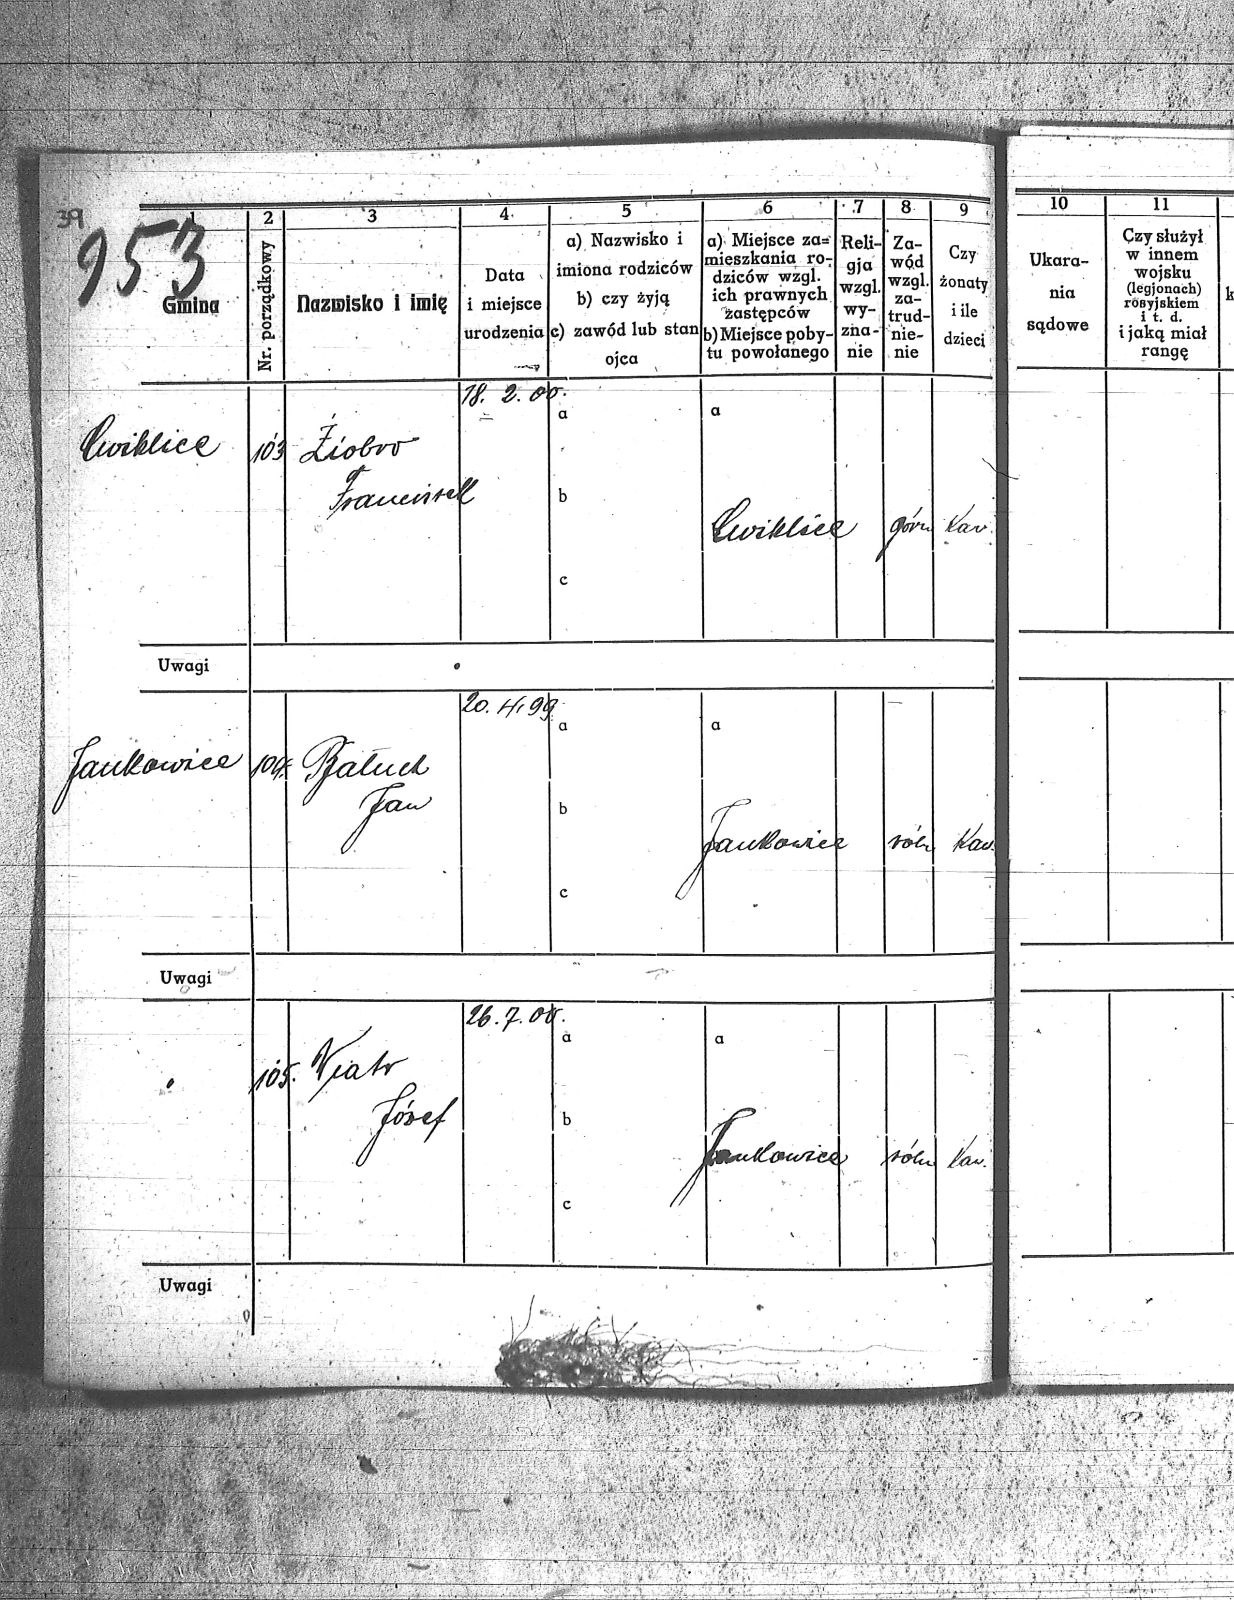 39
953
1
2
3
4
5
6
7
8
9
10
11
Gmina
Nr. porządkowy
Nazwisko i imię
Data
i miejsce
urodzenia
a) Nazwisko i
imiona rodziców
b) czy żyją
c) zawód lub stan
ojca
a) Miejsce za=
mieszkania ro-
dziców wzgl.
ich prawnych
zastępców
b) Miejsce poby-
tu powołanego
Reli-
gja
wzgl.
wy-
zna-
nie
Za-
wód
wzgl.
za-
trud-
nie-
nie
Czy
żonaty
i ile
dzieci
Ukara-
nia
sądowe
Czy służył
w innem
wojsku
(legjonach)
rosyjskiem
i t. d.
i jaką miał
rangę
k
18. 2. 00.
Cwiklice 103 Żiobro
Franciszek
a
b
c
a
Cwiklice górn Kaw.
Uwagi
20. 4. 99
Jankowice 104.
Jan
a
b
c
a
Jankowice róln Kaw.
Uwagi
26. 7. 00.
" 105. Wiatr
Józef
a
b
c
a
Jankowice róln Kaw.
Uwagi